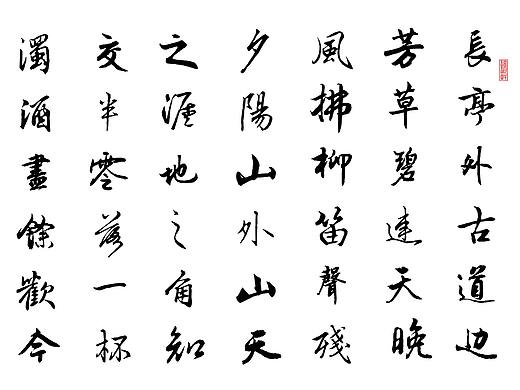 長亭外古道边
芳草碧連天晚
風拂柳笛聲殘
夕陽山外山天
之涯地之角知
交半零落一杯
濁酒盡餘歡今